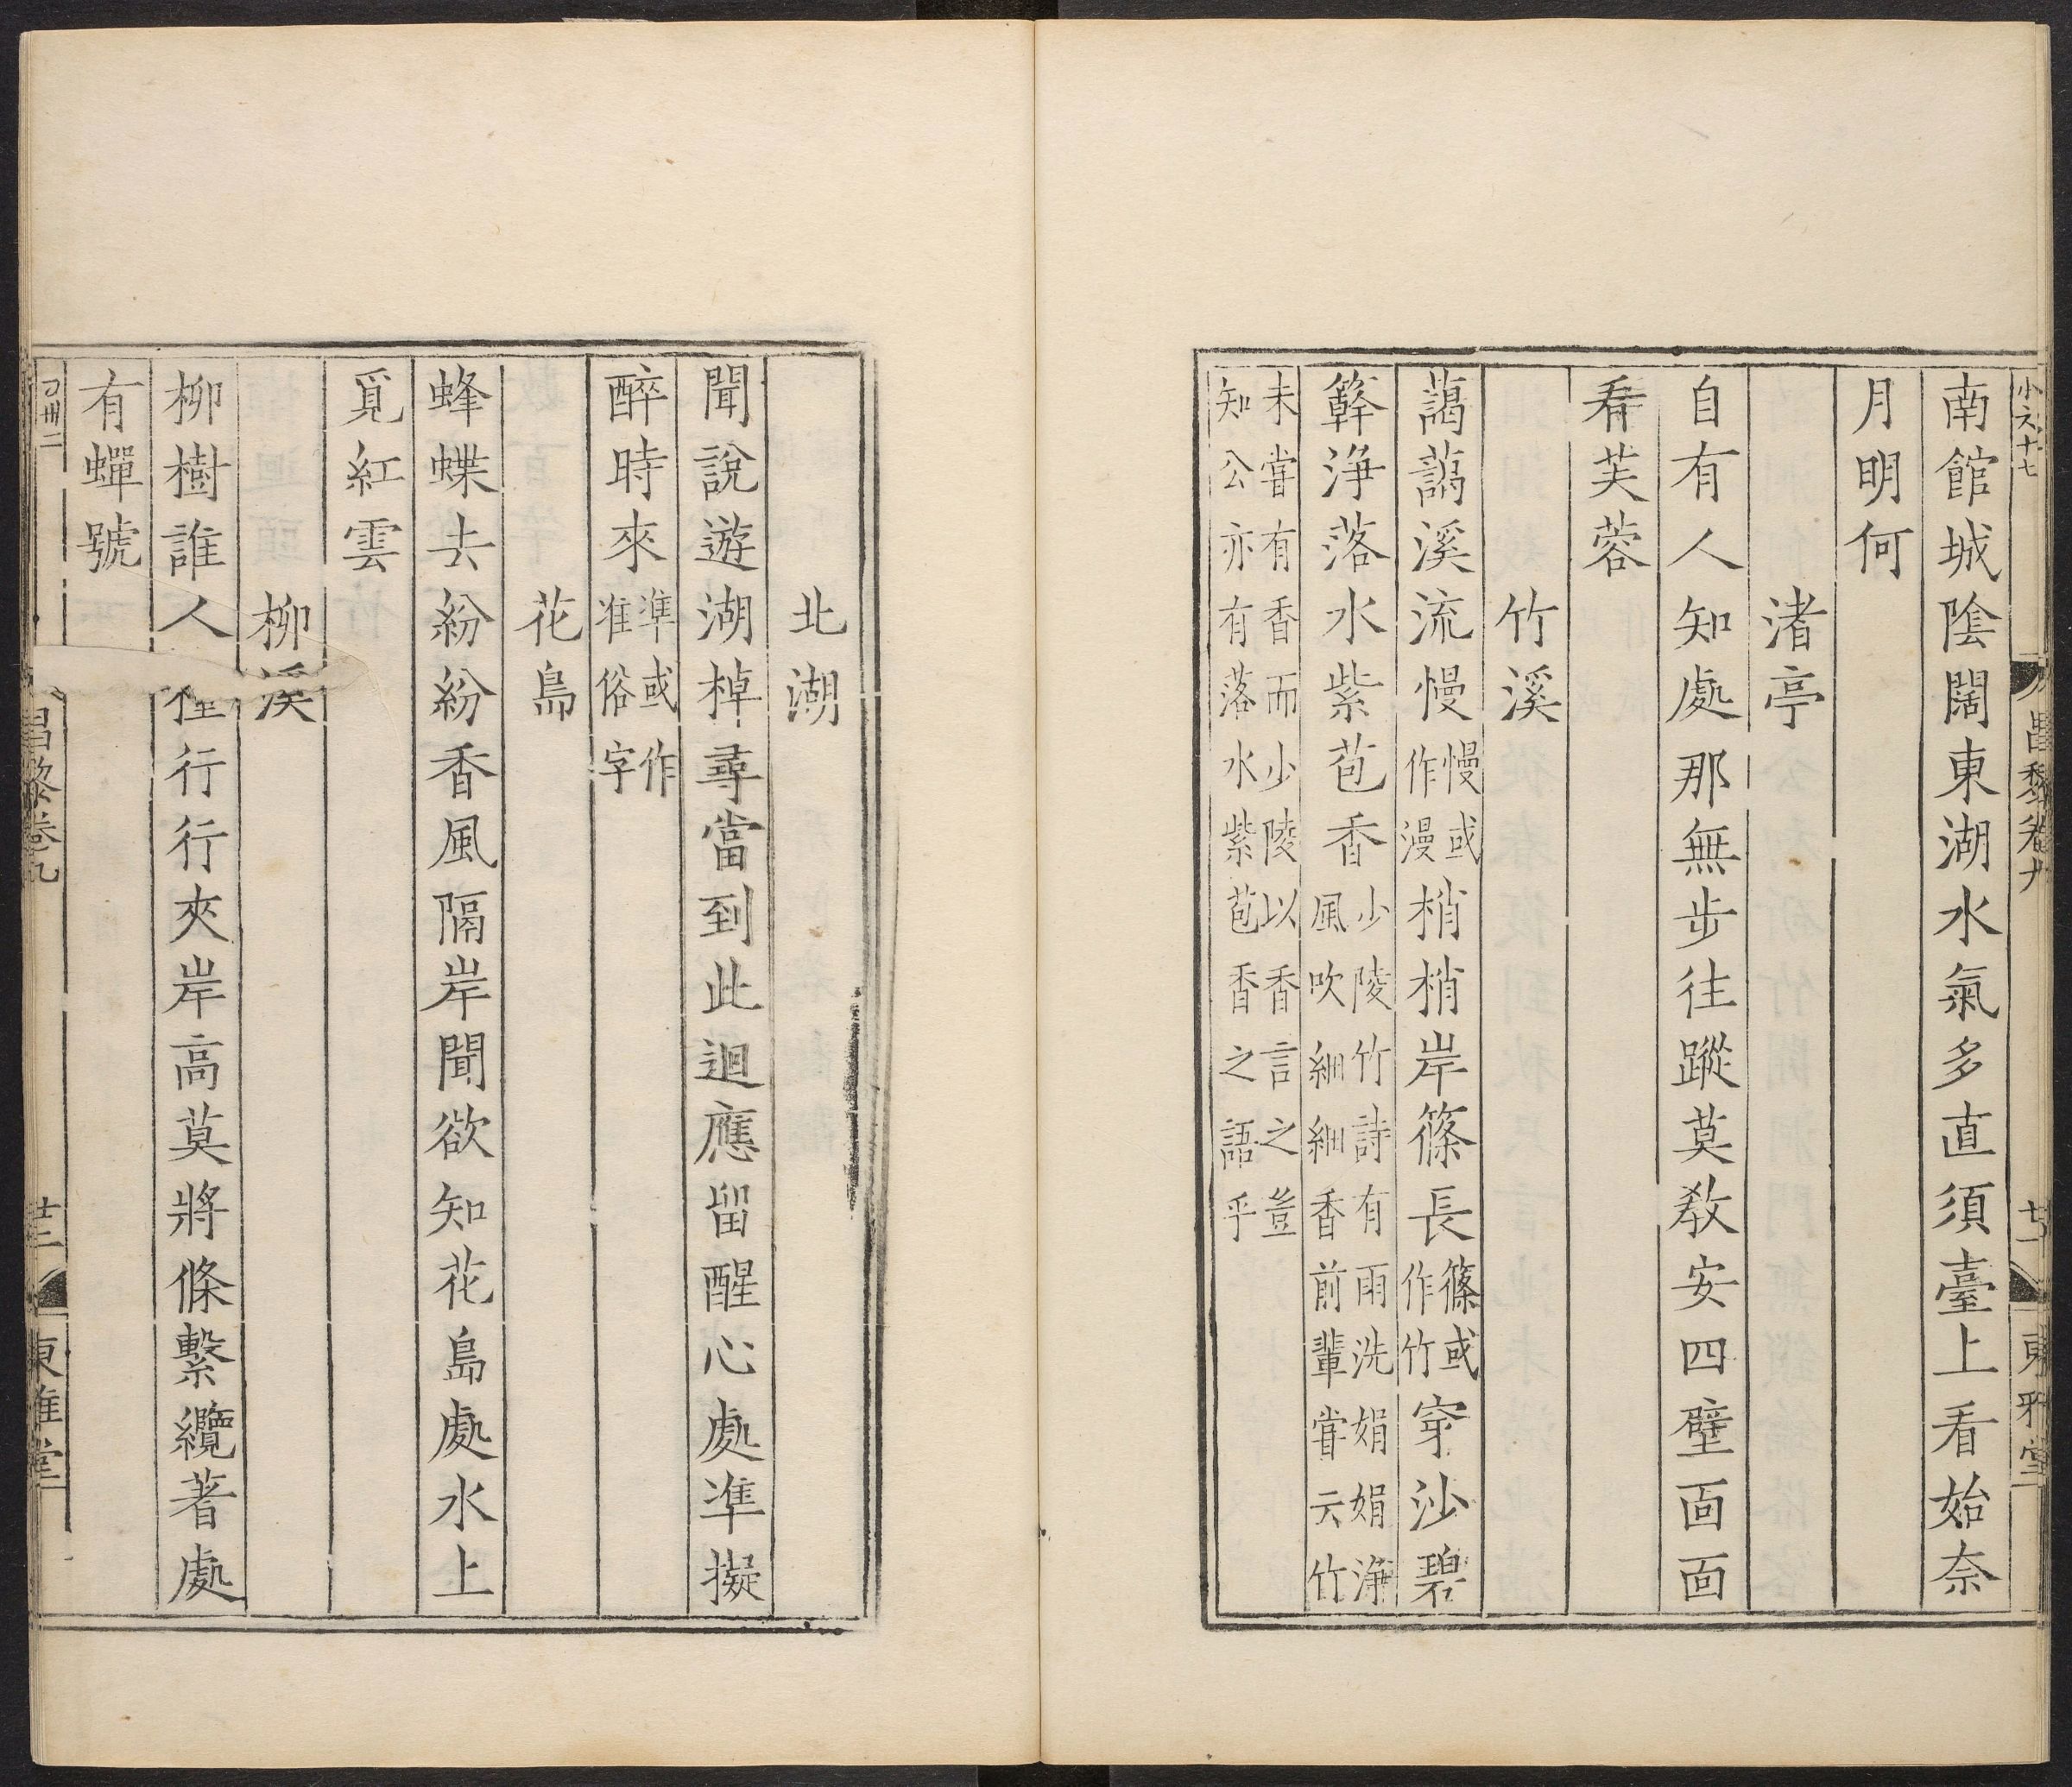 昌黎卷九 廿一 東雅堂
南館城陰闊東湖水氣多直須臺上看始奈
月明何
渚亭
自有人知處那無步往蹤莫教安四壁面面
看芙蓉
竹溪
藹藹溪流慢慢或作漫梢梢岸篠長篠或作竹穿沙碧
簳淨落水紫苞香少陵竹詩有雨洗娟娟淨風吹細細香前輩嘗云竹
未嘗有香而少陵以香言之豈知公亦有落水紫苞香之語乎
北湖
聞說遊湖棹尋當到此迴應留醒心處準擬
醉時來準或作准俗字
花島
蜂蝶去紛紛香風隔岸聞欲知花島處水上
覓紅雲
柳溪
柳樹誰人行行夾岸高莫將條繫纜著處
有蟬號
昌黎卷九 廿二 東雅堂